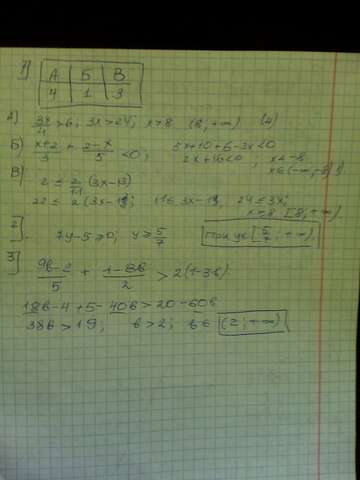 1]
А Б В
4 1 3
А) 3x/4 > 6; 3x > 24; x > 8 (8; +∞) (4)
Б) x+2/3 + 2-x/5 < 0; 5x+10+6-3x<0
2x+16<0; x<-8
x∈(-∞;-8)
В)
2 ≤ 2/11 (3x-13)
22 ≤ 2(3x-13); 11 ≤ 3x-13; 24 ≤ 3x;
x ≥ 8 [8; +∞).
2]. 7y-5≥0; y ≥ 5/7 при y∈[5/7; +∞).
3]
9в-2/5 + 1-8в/2 > 2(1-3в)
18в-4+5-40в > 20-60в
38в > 19; в > 2; в∈ (2; +∞)